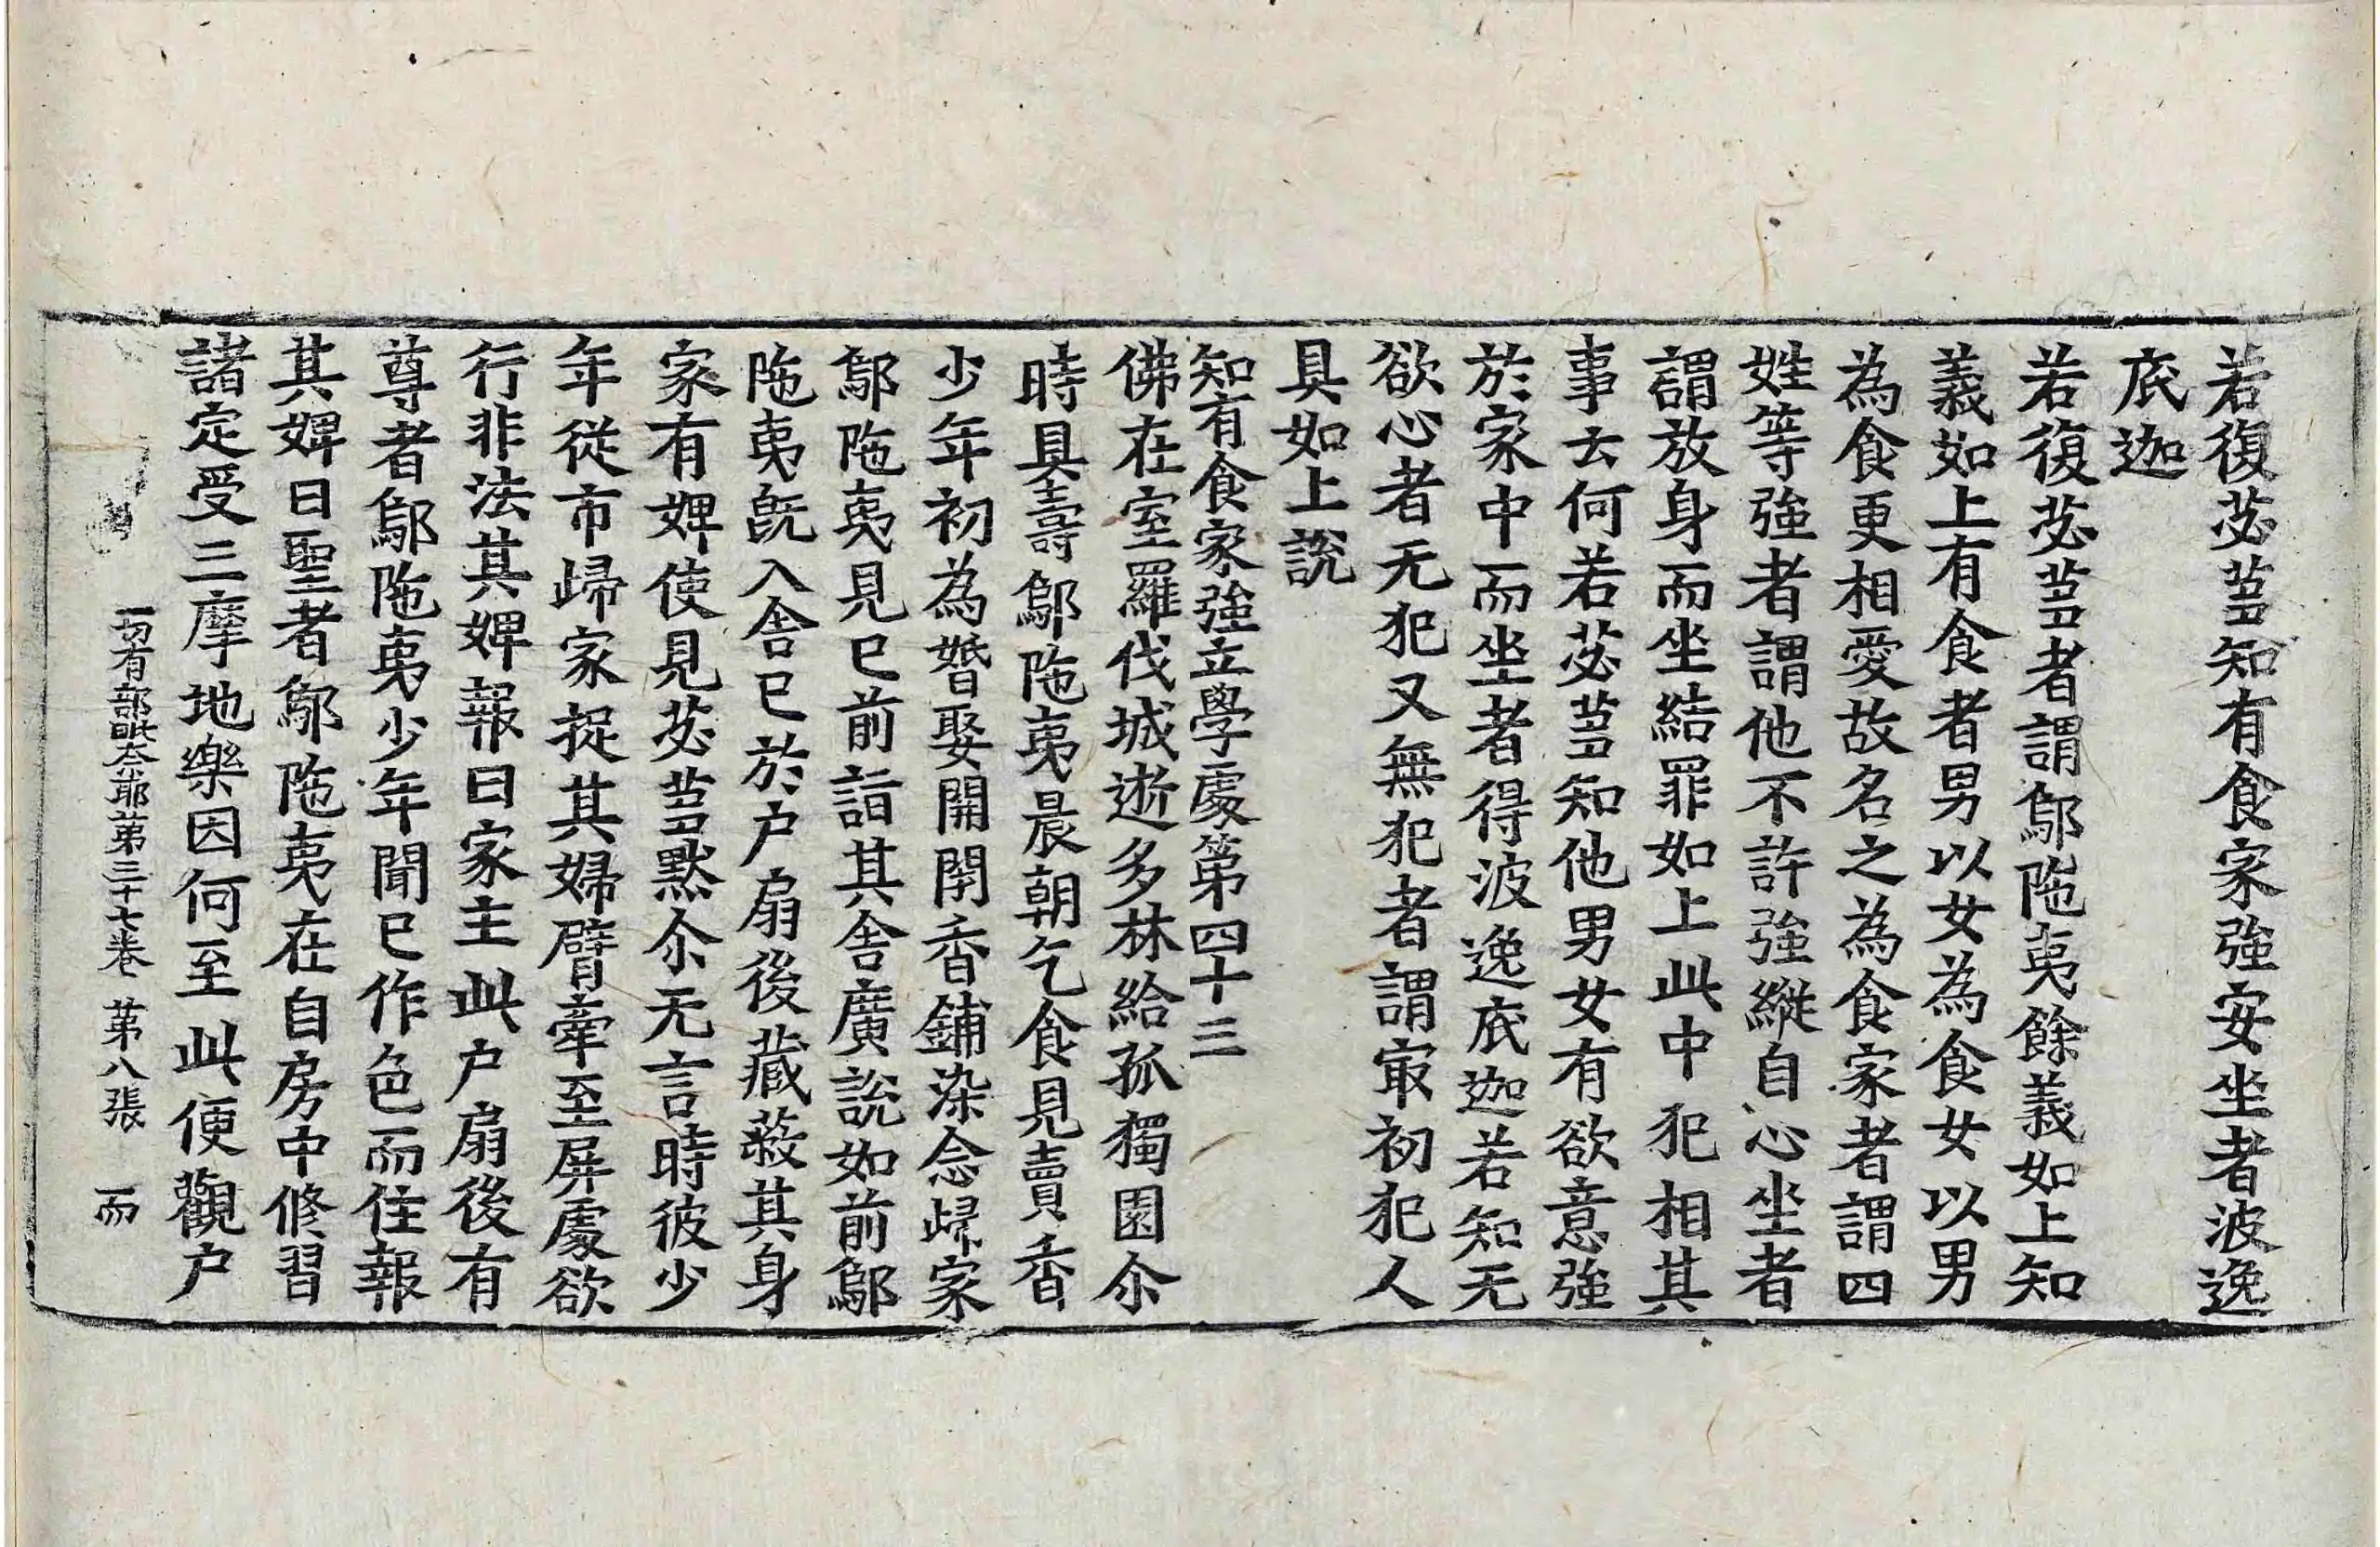 若復苾蒭知有食家強安坐者波逸
底迦
若復苾蒭者謂鄔陁夷餘義如上知
義如上有食者男以女為食女以男
為食更相愛故名之為食家者謂四
姓等強者謂他不許強縱自心坐者
謂放身而坐結罪如上此中犯相其
事云何若苾蒭知他男女有欲意強
於家中而坐者得波逸底迦若知无
欲心者无犯又無犯者謂㝡初犯人
具如上說
知有食家強立學處第四十三
佛在室羅伐城逝多林給孤獨園尒
時具壽鄔陁夷晨朝乞食見賣香
少年初為婚娶開開香鋪染念歸家
鄔陁夷見已前詣其舍廣說如前鄔
陁夷旣入舍已於户扇後藏蔽其身
家有婢使見苾蒭黙尒无言時彼少
年從市歸家捉其婦臂牽至屏處欲
行非法其婢報曰家主此户扇後有
尊者鄔陁夷少年聞已作色而住報
其婢曰聖者鄔陁夷在自房中修習
諸定受三摩地樂因何至此便觀户
一切有部毗奈耶第三十七卷 第八張 而